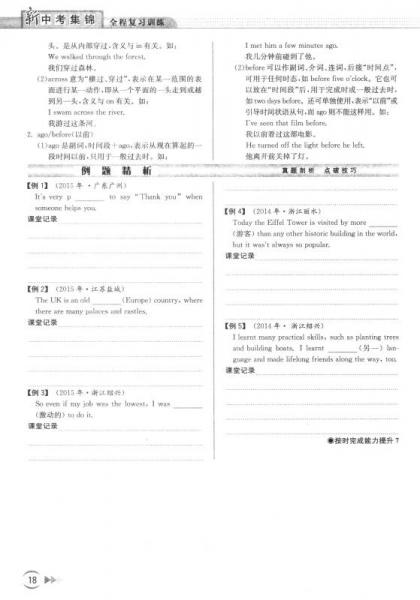 新中考集锦 全程复习训练
头。是从内部穿过,含义与 in 有关。如:
We walked through the forest.
我们穿过森林。
(2)across 意为“横过、穿过”,表示在某一范围的表
面进行某一动作,即从一个平面的一头走到或越
到另一头,含义与 on 有关。如:
I swam across the river.
我游过这条河。
2. ago/before(以前)
(1)ago 是副词,时间段+ago,表示从现在算起的一
段时间以前,只用于一般过去时。如:
I met him a few minutes ago.
我几分钟前碰到了他。
(2)before 可以作副词、介词、连词,后接“时间点”,
可用于任何时态,如 before five o'clock。它也可
以放在“时间段”后,用于完成时或一般过去时,
如 two days before。还可单独使用,表示“以前”或
引导时间状语从句,而 ago 则不能这样用。如:
I've seen that film before.
我以前看过这部电影。
He turned off the light before he left.
他离开前关掉了灯。
例题精析
真题剖析 点破技巧
【例 1】 (2015 年·广东广州)
It's very p ______ to say “Thank you” when
someone helps you.
课堂记录
【例 2】 (2015 年·江苏盐城)
The UK is an old ______ (Europe) country, where
there are many palaces and castles.
课堂记录
【例 3】 (2015 年·浙江绍兴)
So even if my job was the lowest, I was ______
(激动的) to do it.
课堂记录
【例 4】 (2014 年·浙江丽水)
Today the Eiffel Tower is visited by more ______
(游客) than any other historic building in the world,
but it was't always so popular.
课堂记录
【例 5】 (2014 年·浙江绍兴)
I learnt many practical skills, such as planting trees
and building boats. I learnt ______ (另一) lan-
guage and made lifelong friends along the way, too.
课堂记录
◉按时完成能力提升 7
18